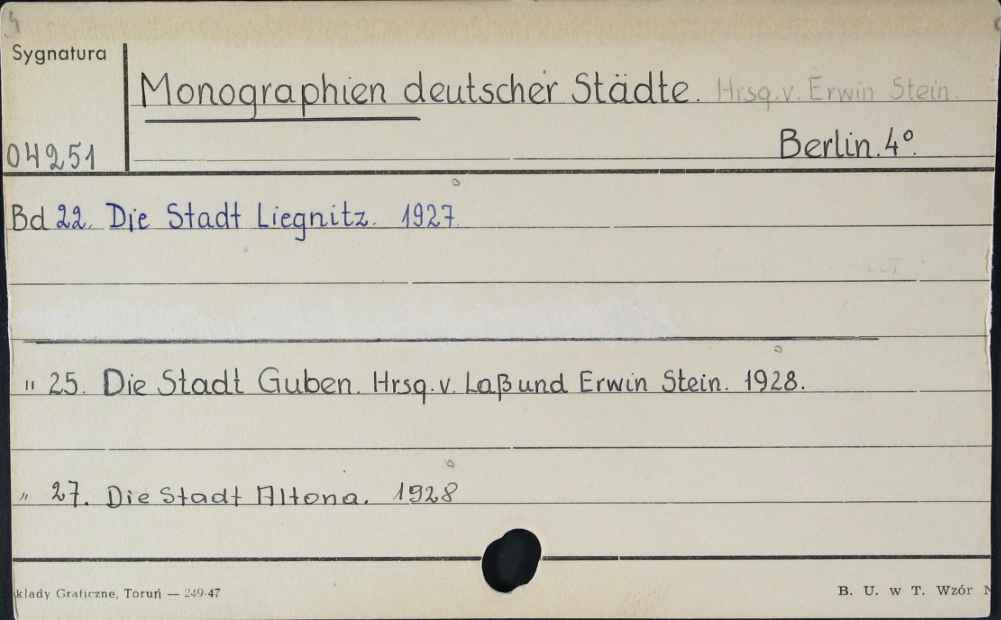 Sygnatura
Monographien deutscher Städte. Hrsg. v. Erwin Stein.
04251
Berlin. 4°.
Bd 22. Die Stadt Liegnitz. 1927.
" 25. Die Stadt Guben. Hrsg. v. Laß und Erwin Stein. 1928.
" 27. Die Stadt Altona. 1928
kłady Graficzne, Toruń — 249-47
B. U. w T. Wzór